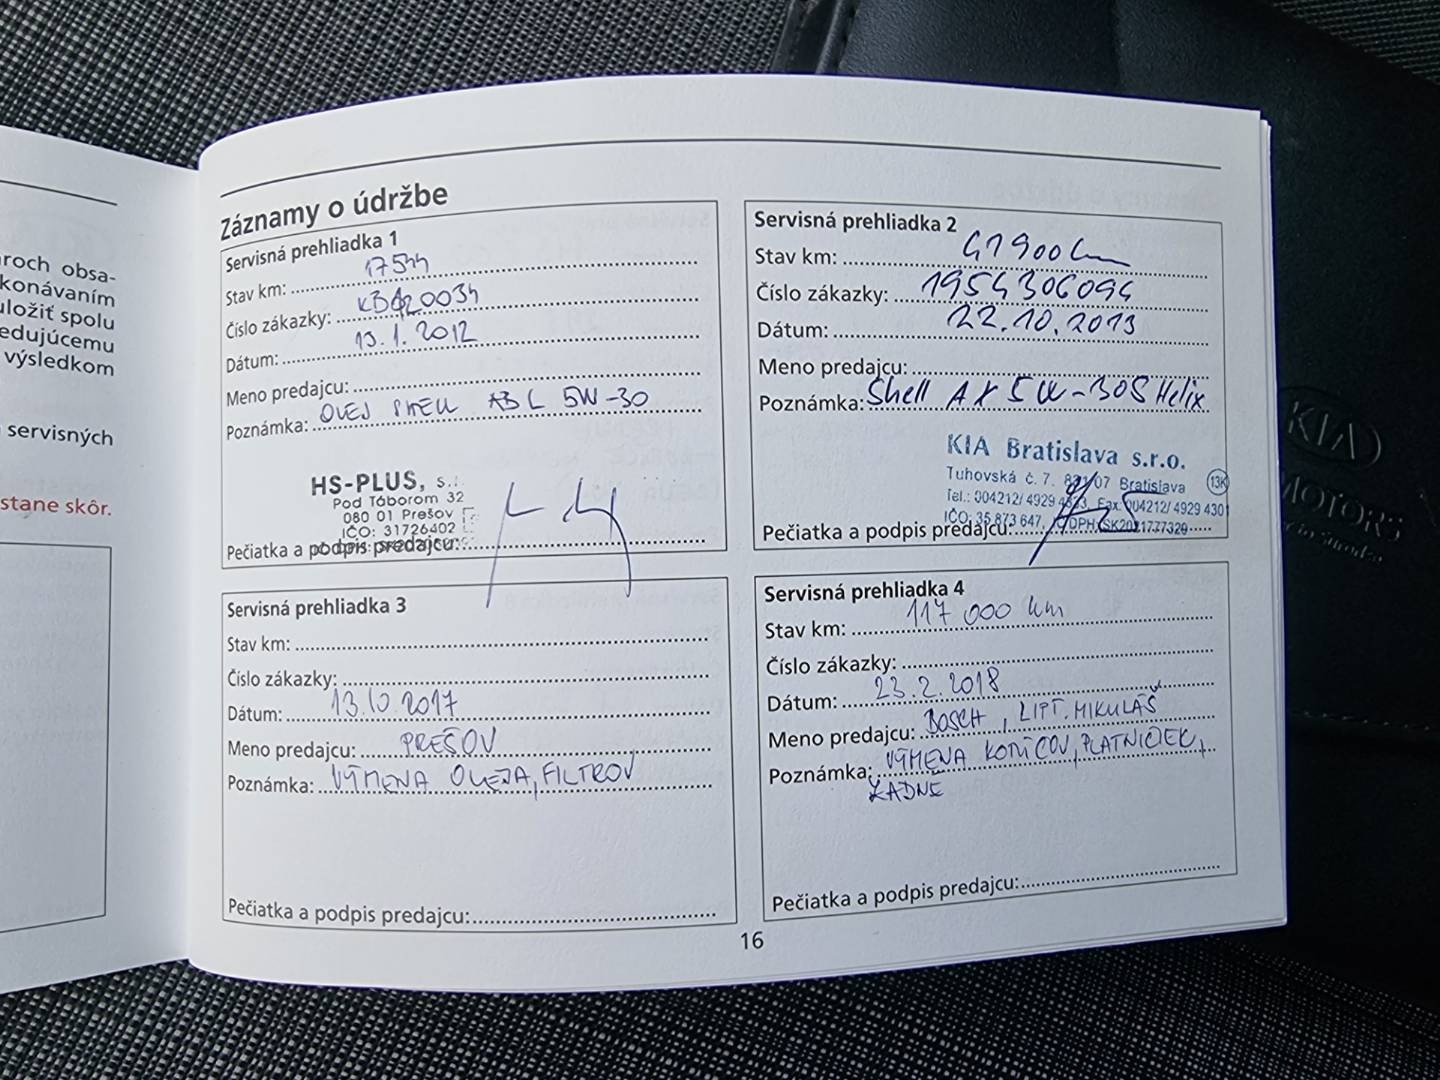 roch obsa-
konávaním
uložiť spolu
edujúcemu
výsledkom
servisných
stane skôr.
Záznamy o údržbe
Servisná prehliadka 1
Stav km: 17544
Číslo zákazky: KB420034
Dátum: 13.1.2012
Meno predajcu:
Poznámka: OLEJ SHELL 5W-30
HS-PLUS, s.
Pod Táborom 32
080 01 Prešov
IČO: 31726402
Pečiatka a podpis predajcu:
Servisná prehliadka 2
Stav km: 41900 km
Číslo zákazky: 1954306094
Dátum: 22.10.2013
Meno predajcu:
Poznámka: Shell AX 5W-30S Helix
KIA Bratislava s.r.o.
Tuhovská č. 7, 831 07 Bratislava
Tel.: 004212/ 4929 Fax: 004212/ 4929 430
IČO: 35 873 647, IČ DPH: SK2021777320
13K
Pečiatka a podpis predajcu:
Servisná prehliadka 3
Stav km:
Číslo zákazky:
Dátum: 13.10.2017
Meno predajcu: PREŠOV
Poznámka: VÝMENA OLEJA, FILTROV
Pečiatka a podpis predajcu:
Servisná prehliadka 4
Stav km: 117 000 km
Číslo zákazky:
Dátum: 23.2.2018
Meno predajcu: BOSCH, LIPT. MIKULÁŠ
Poznámka: VÝMENA KOTÚČOV, PLATNIČIEK,
ZADNÉ
Pečiatka a podpis predajcu:
16
KIA
MOTORS